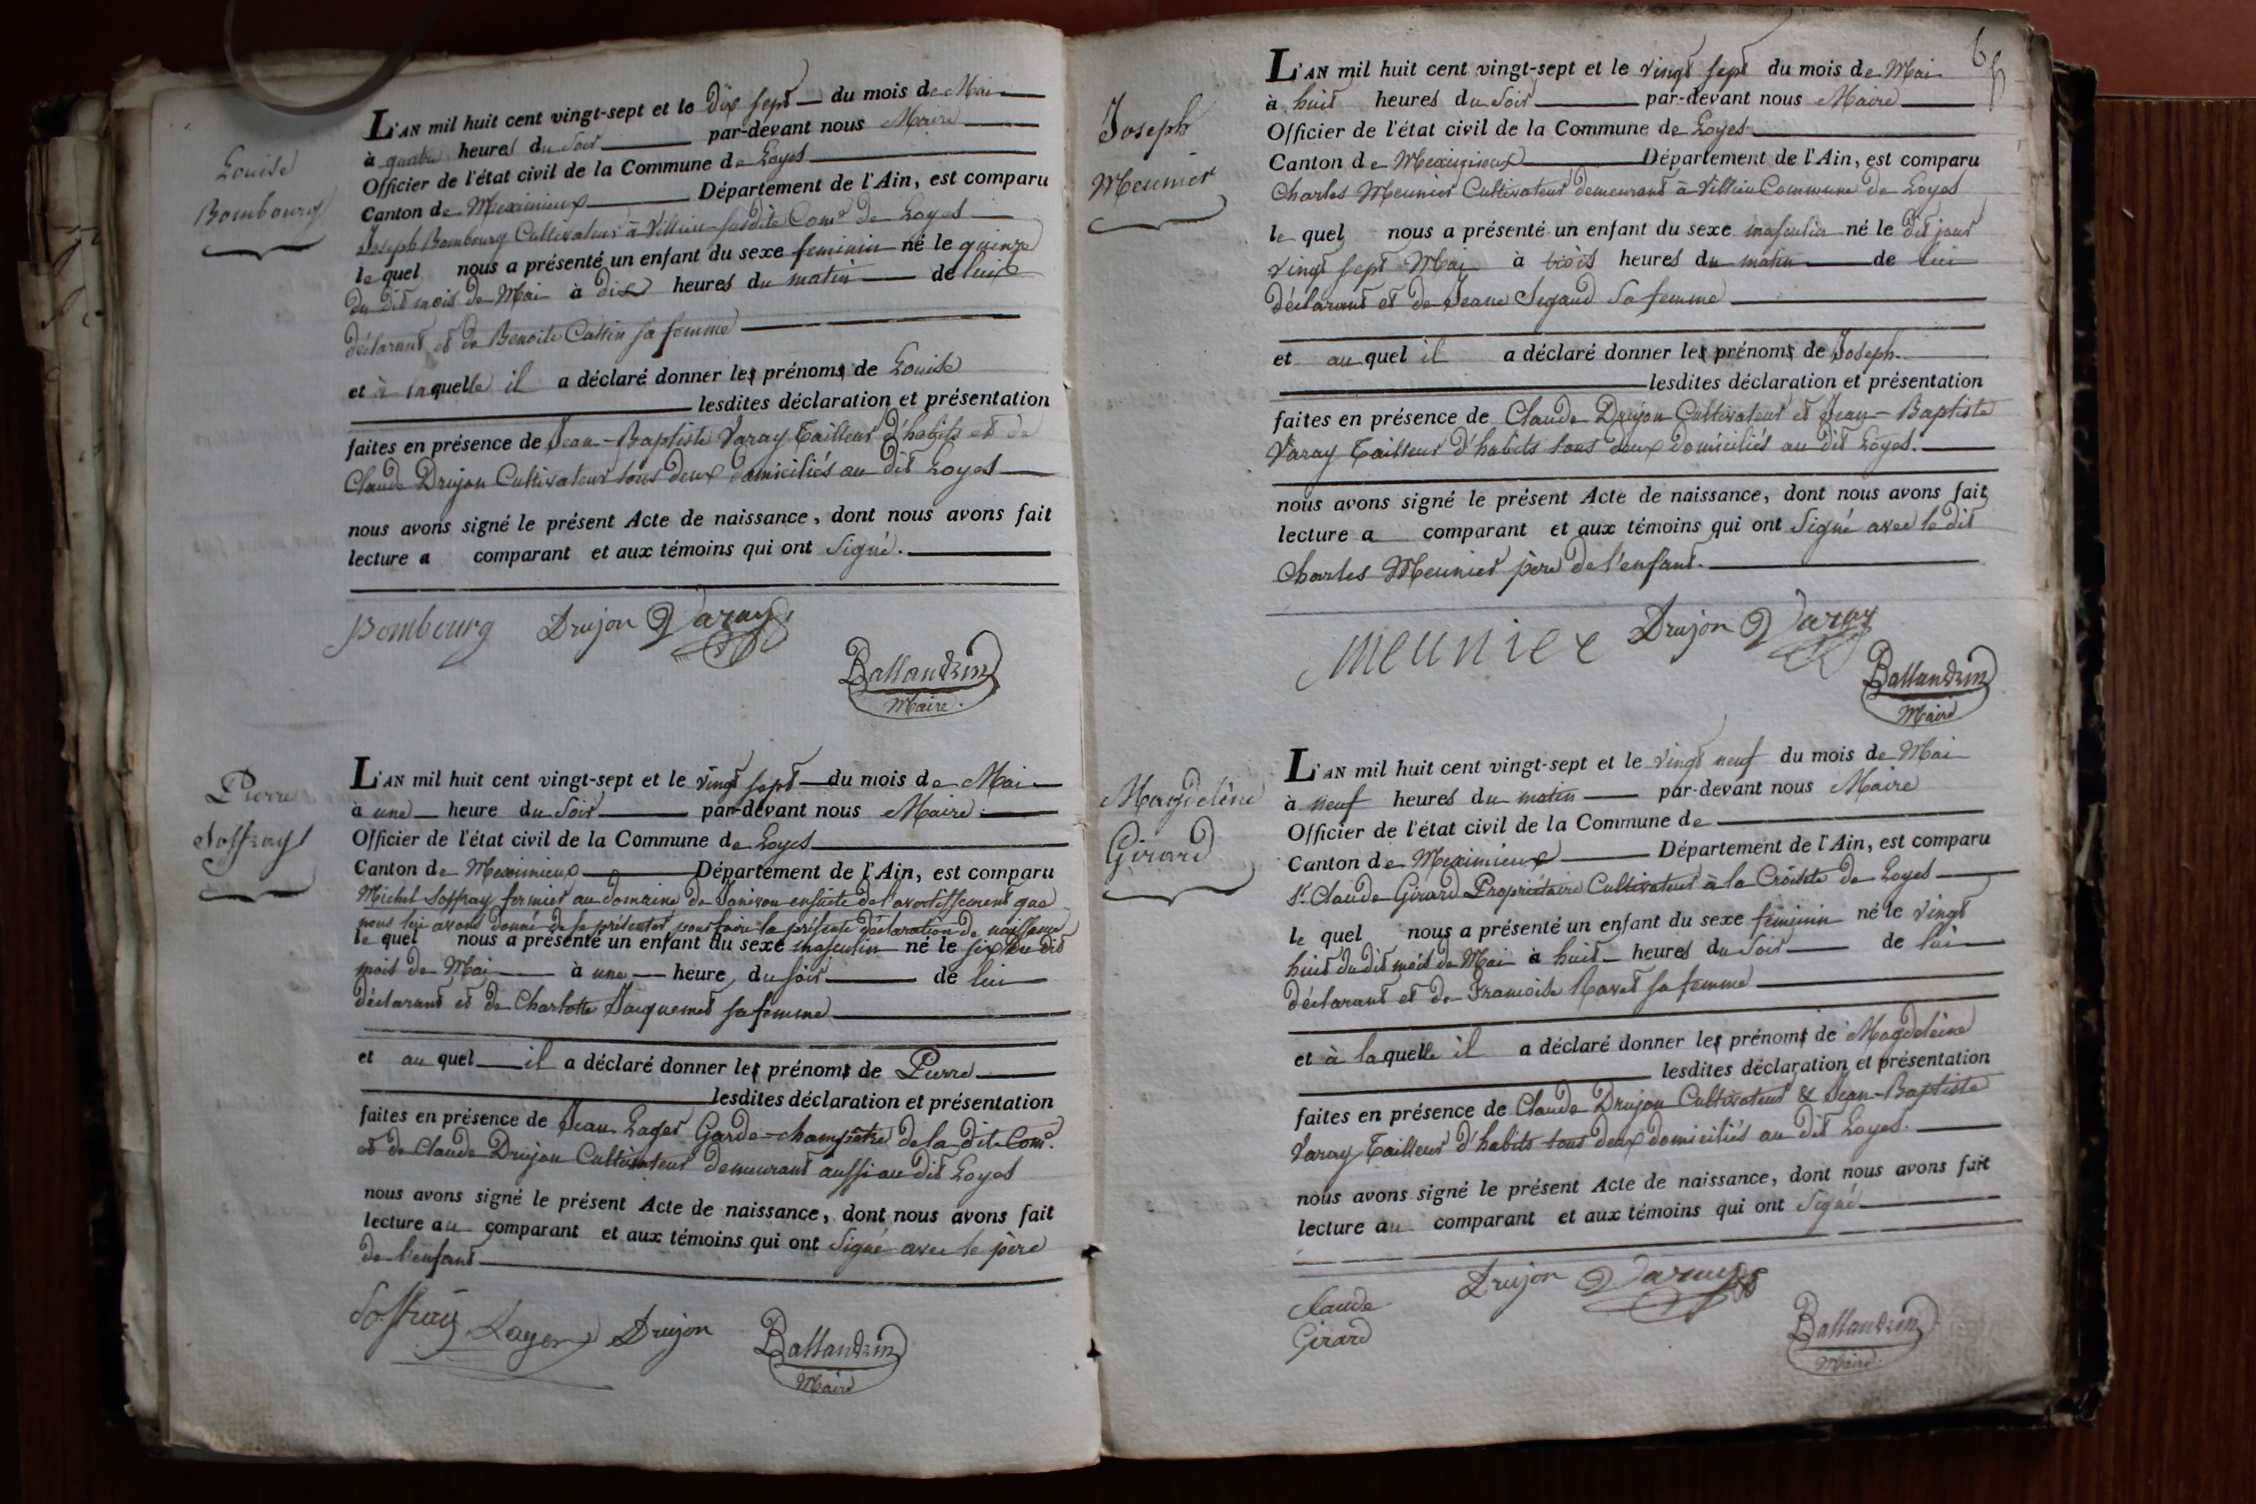 Louise
Bombourg
L'AN mil huit cent vingt-sept et le dix sept du mois de Mai
à quatre heures du soir par-devant nous Maire
Officier de l'état civil de la Commune de Loyes
Canton de Meximieux Département de l'Ain, est comparu
Joseph Bombourg Cultivateur à Villieu susdite Com.e de Loyes
le quel nous a présenté un enfant du sexe feminin né le quinze
du dit mois de Mai à dix heures du matin de lui
déclarant et de Benoite Cattin sa femme
et à laquelle il a déclaré donner les prénoms de Louise
lesdites déclaration et présentation
faites en présence de Jean-Baptiste Varay Tailleur d'habits et de
Claude Drujon Cultivateur tous deux domiciliés au dit Loyes
nous avons signé le présent Acte de naissance, dont nous avons fait
lecture a comparant et aux témoins qui ont signé.
Bombourg Drujon Varay
Ballandrin
Maire.
Pierre
Soffray
L'AN mil huit cent vingt-sept et le vingt sept du mois de Mai
à une heure du soir par-devant nous Maire
Officier de l'état civil de la Commune de Loyes
Canton de Meximieux Département de l'Ain, est comparu
Michel Soffray fermier au domaine de ensuite de l'avertissement que
nous lui avons donné de se présenter pour faire la présente déclaration de naissance
le quel nous a présenté un enfant du sexe masculin né le six du dit
mois de Mai à une heure du soir de lui
déclarant et de Charlotte Jacquemet sa femme
et au quel il a déclaré donner les prénoms de Pierre
lesdites déclaration et présentation
faites en présence de Jean Lager Garde-champêtre de la dite Com.e
et de Claude Drujon Cultivateur demeurant aussi au dit Loyes
nous avons signé le présent Acte de naissance, dont nous avons fait
lecture au comparant et aux témoins qui ont signé avec le père
de l'enfant
Soffray Lager Drujon
Ballandrin
Maire
65
Joseph
Meunier
L'AN mil huit cent vingt-sept et le vingt sept du mois de Mai
à huit heures du soir par-devant nous Maire
Officier de l'état civil de la Commune de Loyes
Canton de Meximieux Département de l'Ain, est comparu
Charles Meunier Cultivateur demeurant à Villieu Commune de Loyes
le quel nous a présenté un enfant du sexe masculin né le dit jour
vingt sept Mai à trois heures du matin de lui
déclarant et de Jeane Sigaud sa femme
et au quel il a déclaré donner les prénoms de Joseph
lesdites déclaration et présentation
faites en présence de Claude Drujon Cultivateur et Jean-Baptiste
Varay Tailleur d'habits tous deux domiciliés au dit Loyes.
nous avons signé le présent Acte de naissance, dont nous avons fait
lecture a comparant et aux témoins qui ont signé avec le dit
Charles Meunier père de l'enfant.
meunier Drujon Varay
Ballandrin
Maire
Magdeleine
Girard
L'AN mil huit cent vingt-sept et le vingt neuf du mois de Mai
à neuf heures du matin par-devant nous Maire
Officier de l'état civil de la Commune de
Canton de Meximieux Département de l'Ain, est comparu
Sr. Claude Girard Propriétaire Cultivateur à la Croisete de Loyes
le quel nous a présenté un enfant du sexe féminin né le vingt
huit du dit mois de Mai à huit heures du soir de lui
déclarant et de Francoise Ravet sa femme
et à laquelle il a déclaré donner les prénoms de Magdeleine
lesdites déclaration et présentation
faites en présence de Claude Drujon Cultivateur & Jean-Baptiste
Varay Tailleur d'habits tous deux domiciliés au dit Loyes.
nous avons signé le présent Acte de naissance, dont nous avons fait
lecture au comparant et aux témoins qui ont signé
Claude Drujon Varay
Girard
Ballandrin
Maire